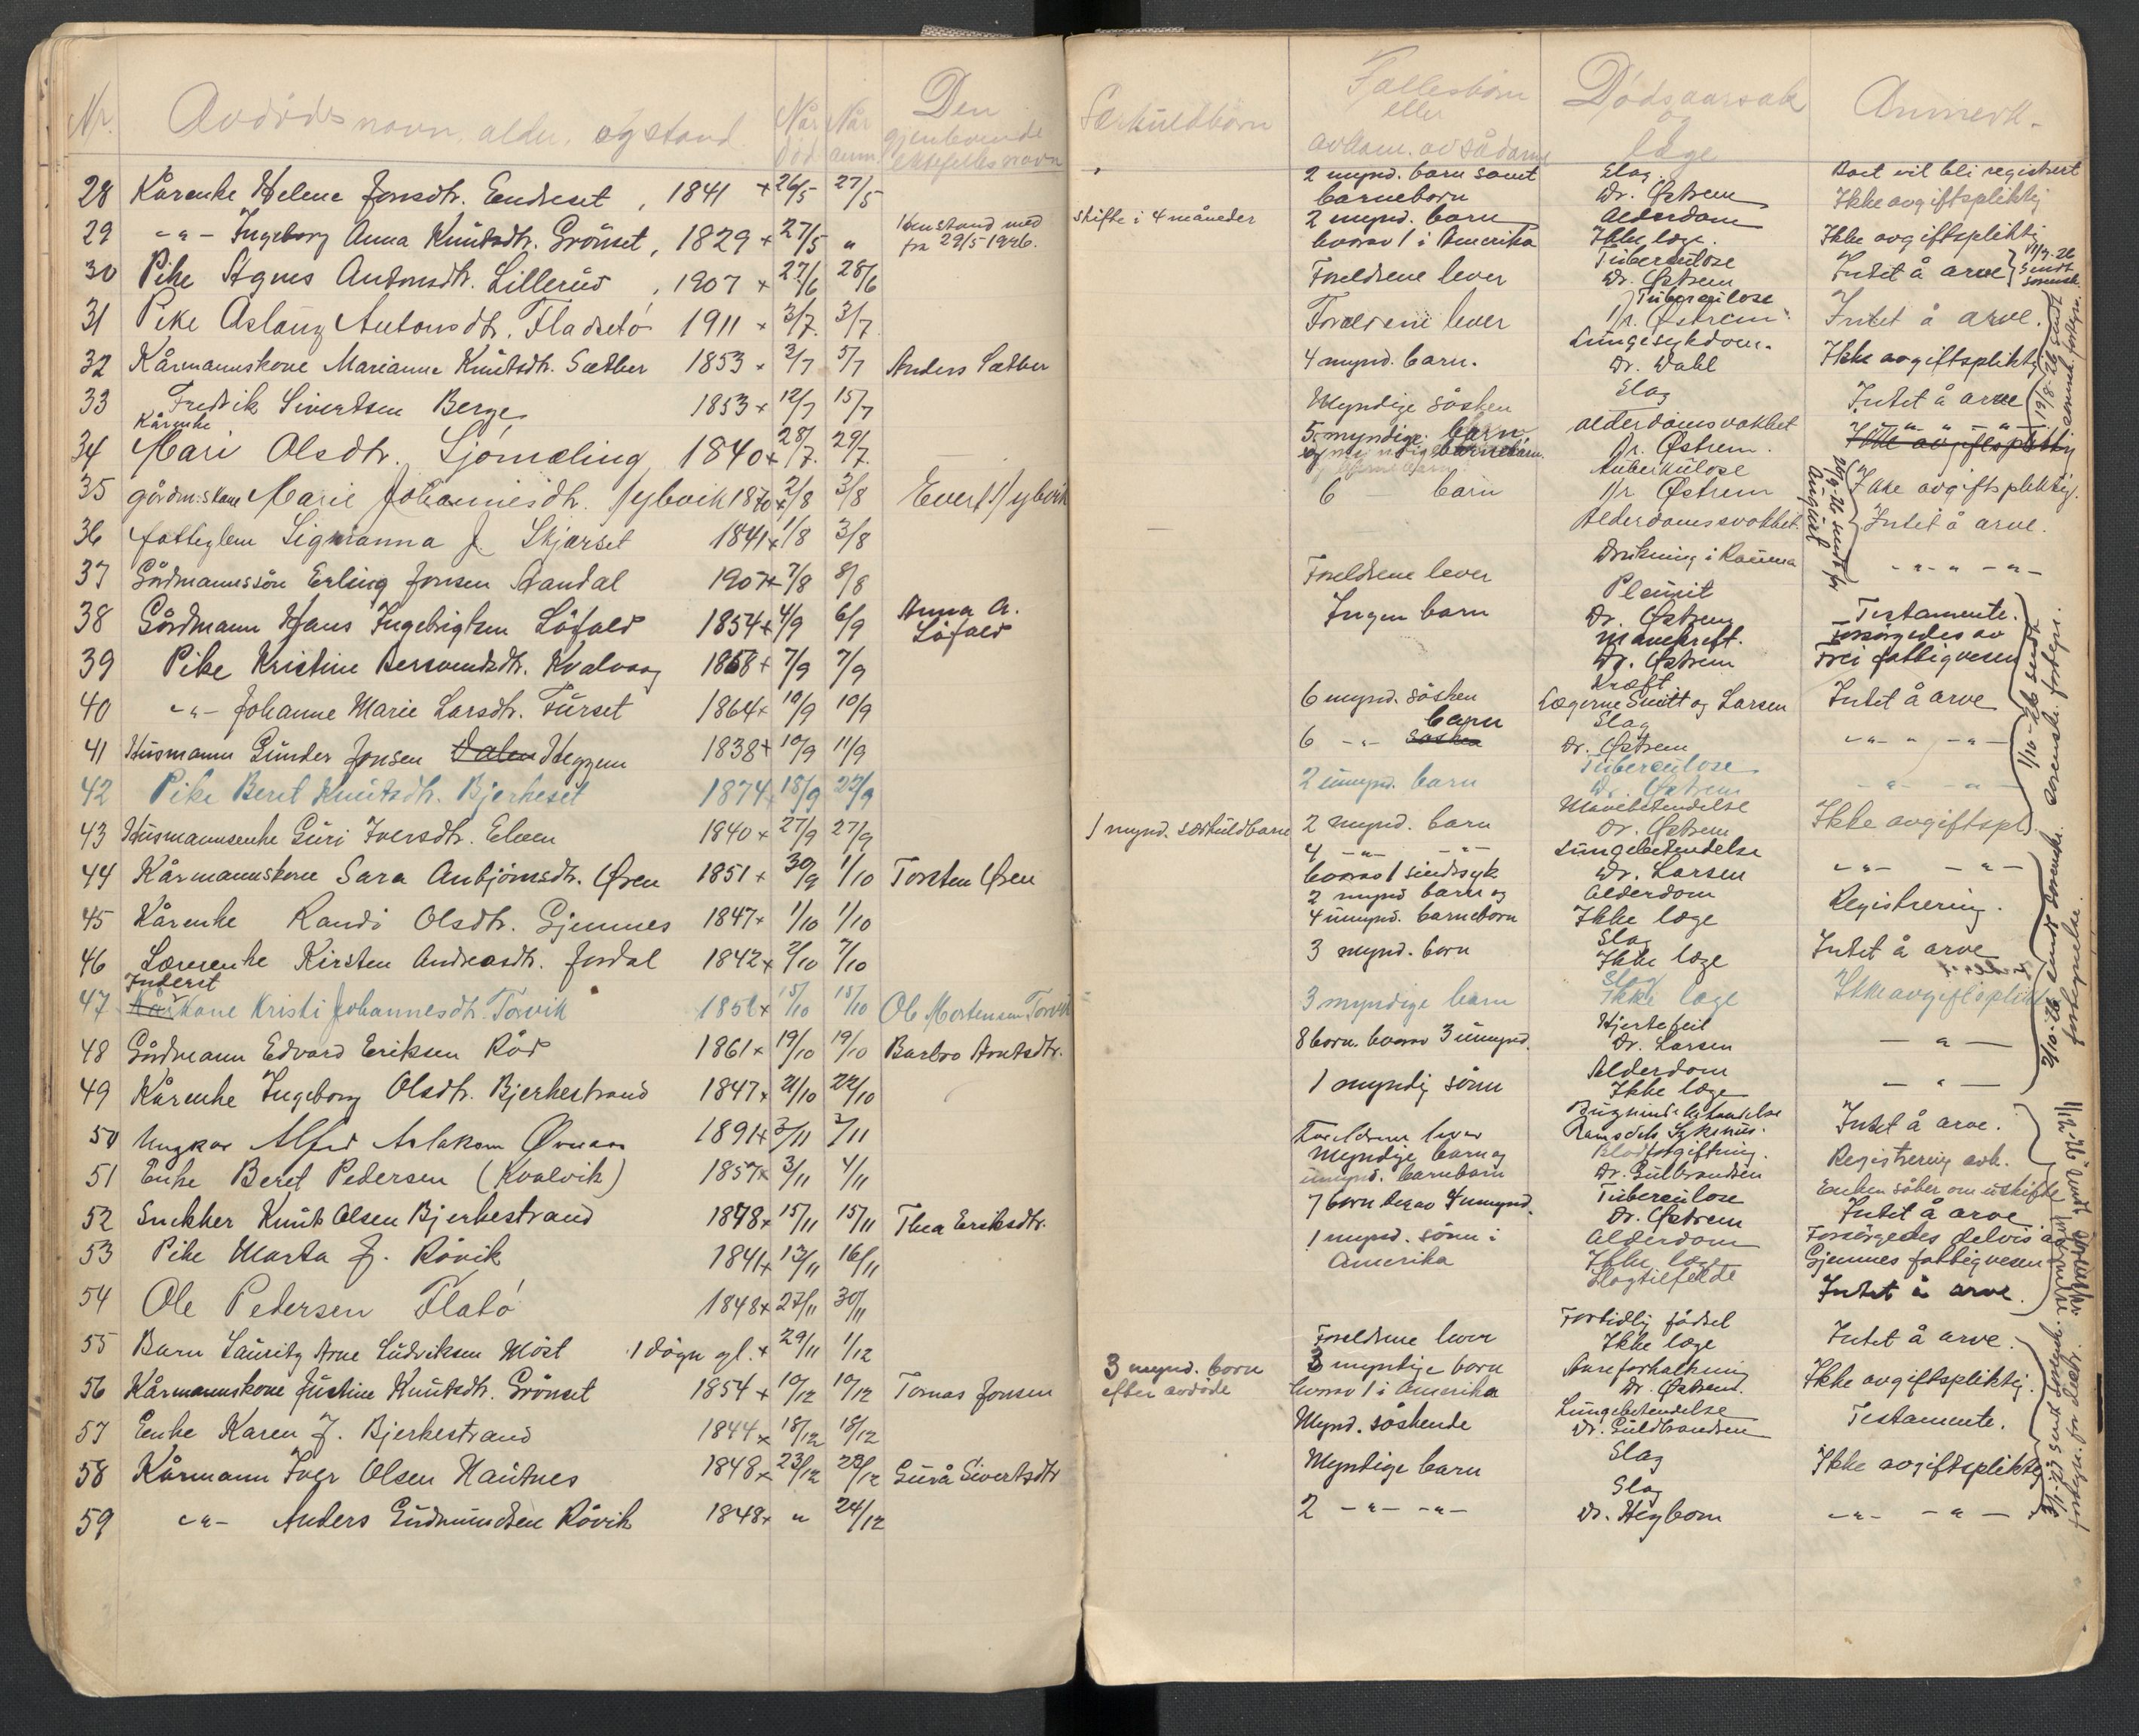 Nr. Avdødes navn, alder, og stand Når død Når anm. Den gjenlevende ektefelles navn Særkuldbørn Fællesbörn eller avkom. av sådanne Dødsaarsak og læge Anmerk.
28 Kårenke Helene Jonsdtr. Eendreset, 1841 + 26/5 27/5 2 mynd. barn samt barneborn Slag Dr. Østrem Boet vil bli registrert Ikke avgiftspliktig
29 -"- Ingeborg Anna Knutsdtr. Grönset, 1829 + 27/5 " Henstand med skifte i 4 måneder fra 29/5-1926. 2 mynd. barn hvorav 1 i Amerika Alderdom Ikke læge. Ikke avgiftspliktig
30 Pike Agnes Antonsdtr. Lillerud, 1907 + 27/6 28/6 Foreldrene lever Tuberculose Dr. Østrem Intet å arve
31 Pike Aslaug Antonsdtr. Fladsetö 1911 + 3/7. 3/7. Foreldrene lever Tuberculose Dr. Østrem Intet å arve.
32 Kårmannskone Marianne Knutsdtr. Sæther 1853 + 3/7 5/7 Anders Sæther 4 mynd. barn. Lungesykdom. Dr. Dahl Ikke avgiftspliktig
33 Fredrik Sivertsen Berge 1853 + 12/7 15/7 Myndige sösken Slag Intet å arve
34 Kårenke Mari Olsdtr. Sjömæling 1840 + 28/7. 29/7. 5 myndige barn og myndig barnebarn. alderdomsvakhet Dr. Østrem. " " " Ikke avgiftspliktig
35 gårdm:skone Marie Johannesdtr. Nybvik 1870 + 2/8 3/8 Evert Nybvik 6 barn tuberkulose Dr Østrem Ikke avgiftspliktig.
36 fattiglem Signianna J. Skjærset 1841 + 1/8 3/8 — Alderdomssvakhet. Intet å arve.
37 Gårdmannssön Erling Jonsen Sandal 1907 + 7/8 8/8 Foreldrene lever Drukning i Rauma -"- " -"-
38 Gårdmann Hans Ingebrigtsen Löfald 1854 + 4/9 6/9 Anna A. Löfald Ingen barn Pleurit Dr. Østrem Testamente.
39 Pike Kristine Bersvendsdtr. Kvalvaag 1868 + 7/9 7/9 Mavekreft. Dr. Østrem Forsörgedes av Frei fattigvesen
40 -"- Johanne Marie Larsdtr. Furset 1864 + 10/9 10/9 6 mynd. sösken Kræft Lægerne Smitt og Larsen Intet å arve
41 Husmann Gunder Jonsen Dalen Heggem 1838 + 10/9 11/9 6 -"- sösken barn Slag Dr. Østrem -"- " -"-
42 Pike Beret Knutsdtr. Bjerkeset 1874 + 18/9 22/9 2 umynd. barn Tuberculose Dr. Østrem -"- -"-
43 Husmannsenke Guri Iversdtr. Elven 1840 + 27/9 27/9 1 mynd. særkuldbarn 2 mynd. barn Mavebetendelse Dr. Østrem Ikke avgiftspl.
44 Kårmannskone Sara Anbjörnsdtr. Øren 1851 + 30/9 1/10 Torsten Øren 4 -"- -"- hvorav 1 sindssyk Lungebetendelse Dr. Larsen -"- -"-
45 Kårenke Randi Olsdtr. Gjemnes 1847 + 1/10 1/10 2 mynd barn og 4 umynd. barneborn Alderdom Ikke læge Registrering.
46 Lærerenke Kirsten Andreasdtr. Jordal 1842 + 2/10 7/10 3 mynd. born Slag Ikke læge Intet å arve
47 Kår Inderst kone Kristi Johannesdtr. Torvik 1852 + 15/10 18/10 Ole Mortensen Torvik 3 myndige barn Slag Ikke læge Ikke avgiftsplikt
48 Gårdmann Edvard Eriksen Röd 1861 + 19/10 19/10 Barbro Arntsdtr. 8 born. hvorav 3 umynd. Hjertefeil Dr. Larsen — " —
49 Kårenke Ingeborg Olsdtr. Bjerkestrand 1847 + 21/10 22/10 1 myndig sönn Alderdom Ikke læge — " —
50 Ungkar Alfred Aslaksen Ørnaas 1891 + 3/11 3/11 Foreldrene lever Bughindebetendelse Ramsdals Sykehus. Intet å arve.
51 Enke Beret Pedersen (Kvalvik) 1857 + 3/11 4/11 Myndige barn og umynd. barnebarn Blodforgiftning. Dr. Gulbrandsen Registrering avh.
52 Snekker Knut Olsen Bjerkestrand 1878 + 15/11 15/11 Thea Eriksdtr. 7 born derav 4 umynd. Tuberculose Dr. Østrem Enken söker om uskifte Intet å arve
53 Pike Marta J. Rövik 1841 + 13/11 16/11 1 mynd. sönn i Amerika Alderdom Ikke læge Forsörgedes delvis av Gjemnes fattigvesen
54 Ole Pedersen Flatö 1848 + 27/11 30/11 Slagtilfelde Intet å arve.
55 Barn Lauritz Arne Ludviksen Möst 1 dögn gl. + 29/11 1/12 Foreldrene lever Fortidlig födsel Ikke læge Intet å arve.
56 Kårmannskone Justine Knutsdtr. Grönset 1854 + 10/12 10/12 Tomas Jonsen 3 mynd. born efter avdöde 3 myndige born hvorav 1 i Amerika Aareforkalkning Dr. Østrem. Ikke avgiftspliktig.
57 Enke Karen J. Bjerkestrand 1844 + 18/12 18/12 Mynd. söskende Lungebetendelse Dr. Guldbrandsen Testamente.
58 Kårmann Iver Olsen Nautnes 1848 + 23/12 23/12 Gurå Sivertsdtr Myndige barn Slag Ikke avgiftspliktig
59 -"- Anders Gudmundsen Rövik 1848 + " 24/12 2 -"- -"- Slag Dr. Heybom -"- -"-